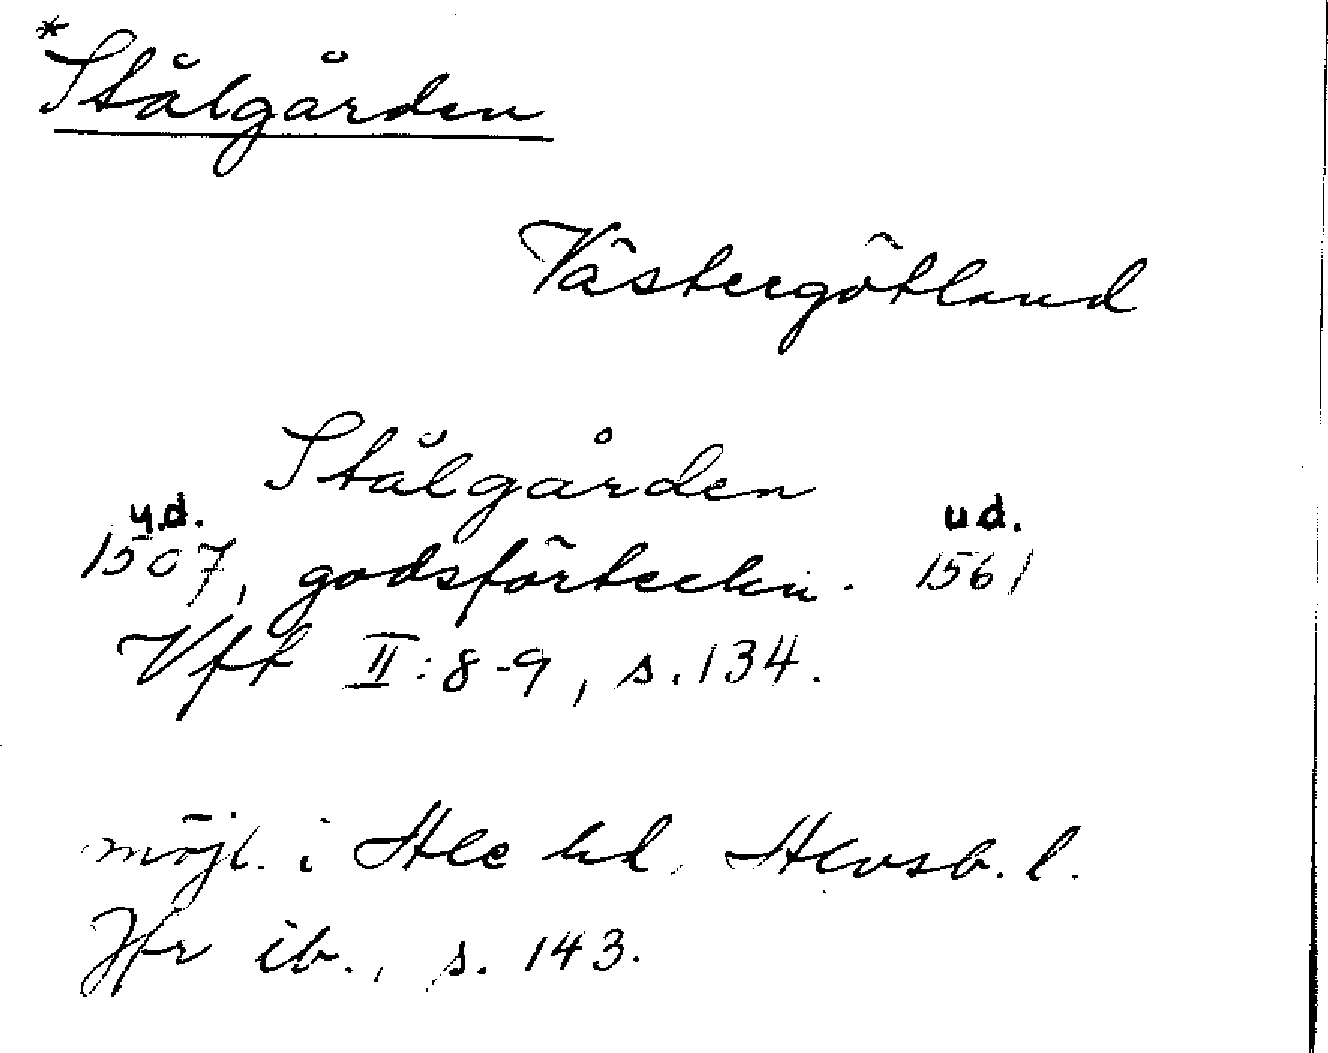 *Stålgården
Västergötland
Stålgården
y.d. u.d.
1507, godsförteckn. 1561
Vft II:8-9, s.134.
möjl. i Ale hd, Älvsb. l.
Jfr ib., s. 143.